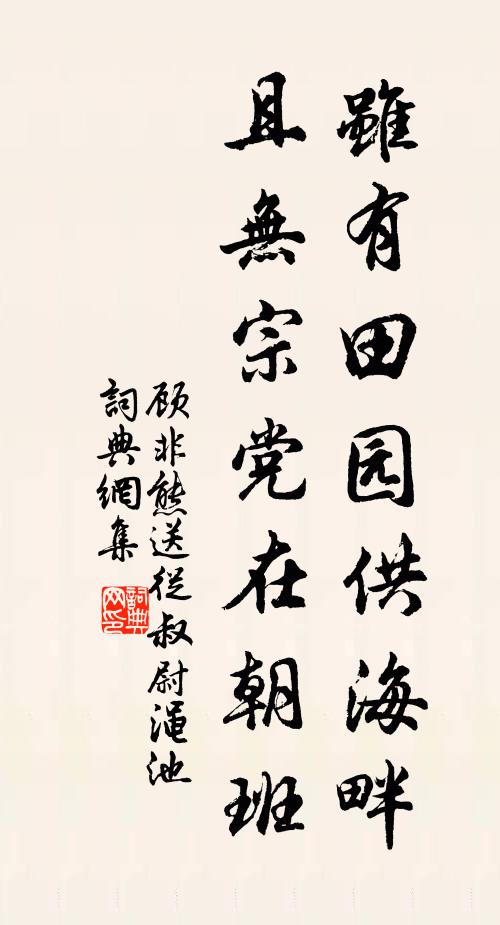 雖有田园供海畔
且無宗党在朝班
顾非熊送從叔尉澠池
詞典網集
詞典
网印